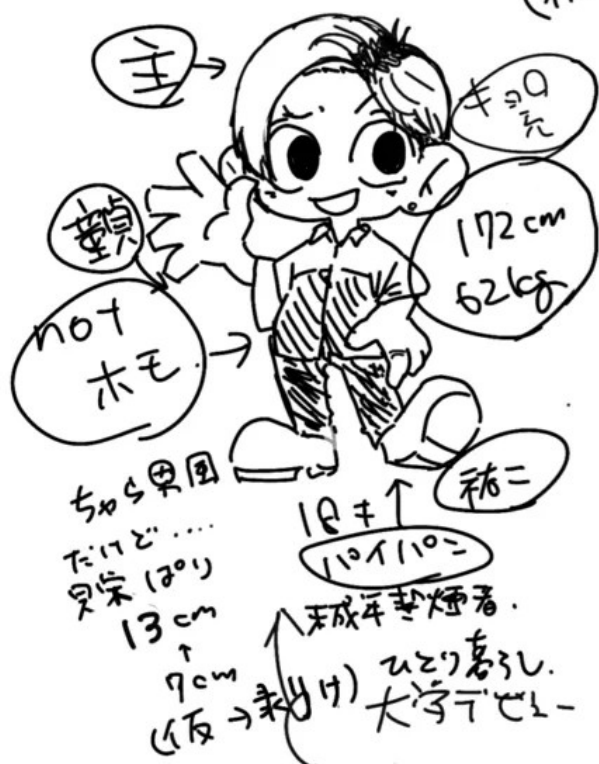 主
キョロ
充
童貞
172cm
62kg
not
ホモ
祐二
ちゃら男風
だけど....
見栄ぱり
13cm
7cm
(仮→
18才
パイパン
未成年喫煙者.
ひとり暮らし.
大学デビュー